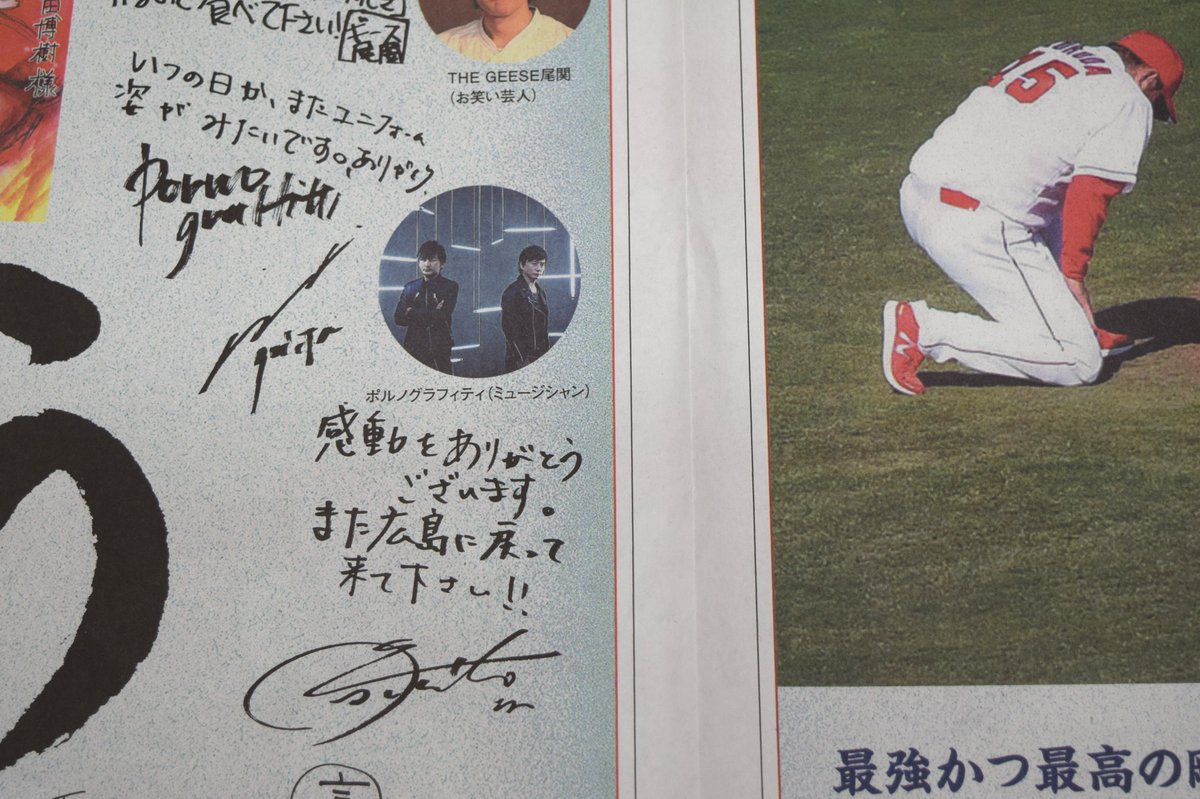 田博樹様
食べて下さい!
THE GEESE尾関
(お笑い芸人)
いつの日か、またユニフォーム
姿がみたいです。ありがとう。
Porno
graffitti
ポルノグラフィティ(ミュージシャン)
感動をありがとう
ございます。
また広島に戻って
来て下さい!!
KURODA
15
最強かつ最高の